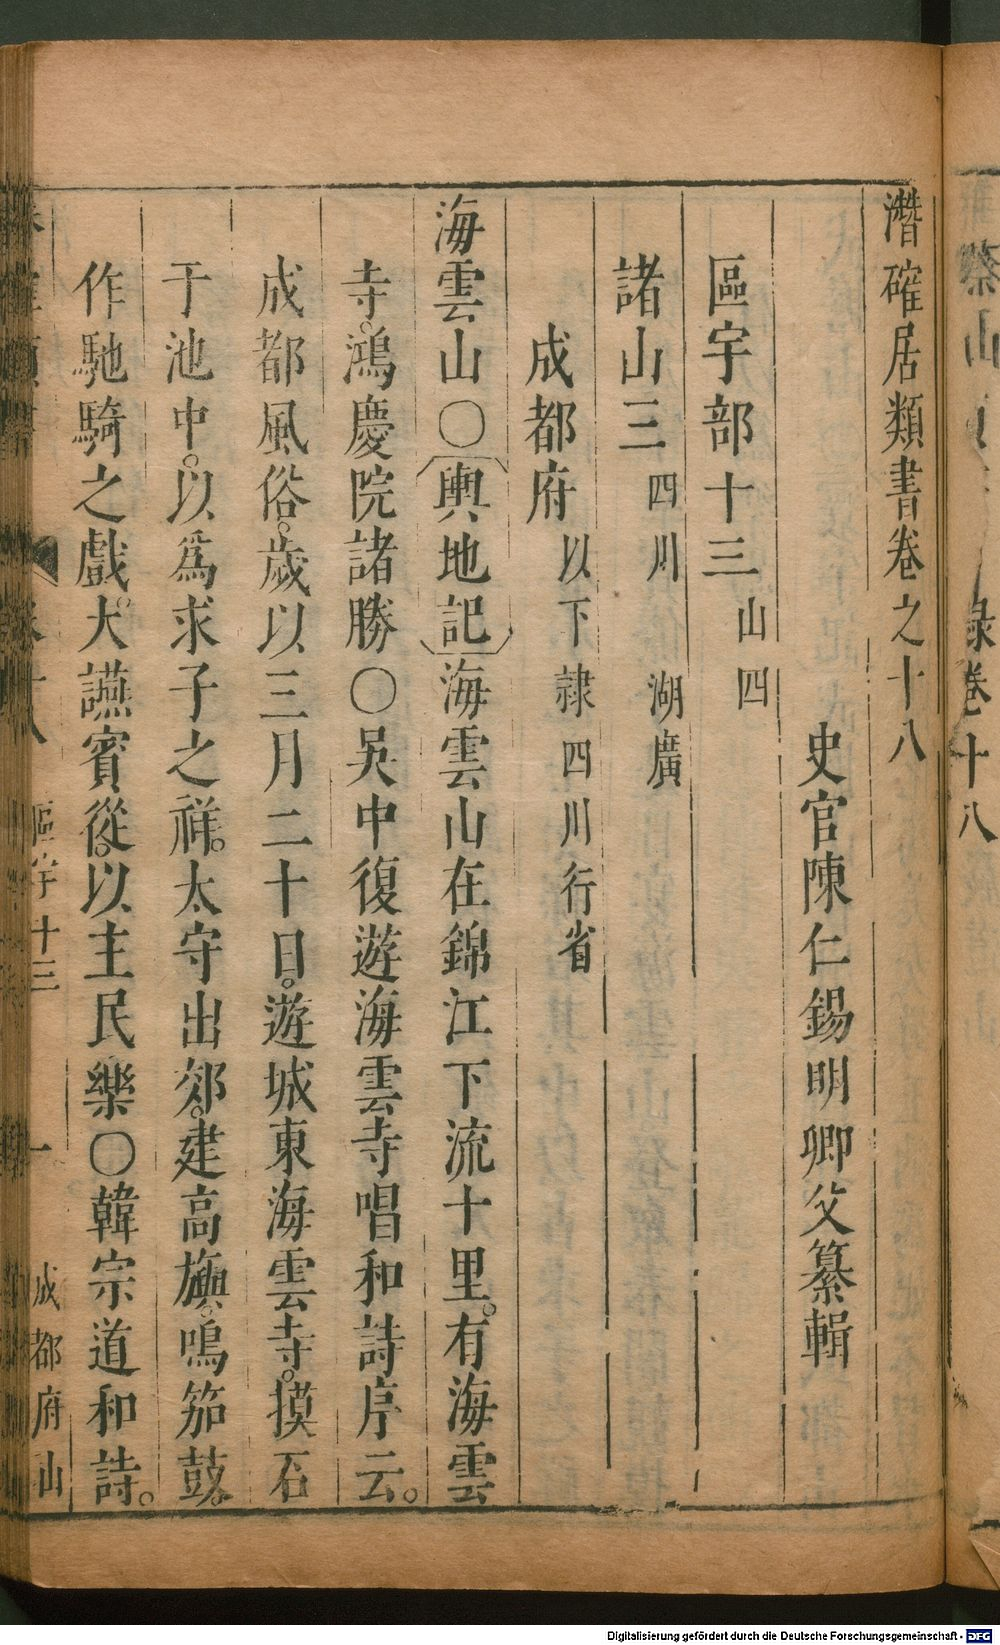 潛確居類書卷之十八
史官陳仁錫明卿父纂輯
區宇部十三 山四
諸山三 四川 湖廣
成都府 以下隸四川行省
海雲山○輿地記海雲山在錦江下流十里。有海雲
寺。鴻慶院諸勝○吳中復遊海雲寺唱和詩序云。
成都風俗。歲以三月二十日。遊城東海雲寺。摸石
于池中。以爲求子之祥。太守出郊。建高旟。鳴笳鼓。
作馳騎之戲。大讌賓從。以主民樂○韓宗道和詩。
區宇十三 一 成都府山
卷十八
Digitalisierung gefördert durch die Deutsche Forschungsgemeinschaft - DFG